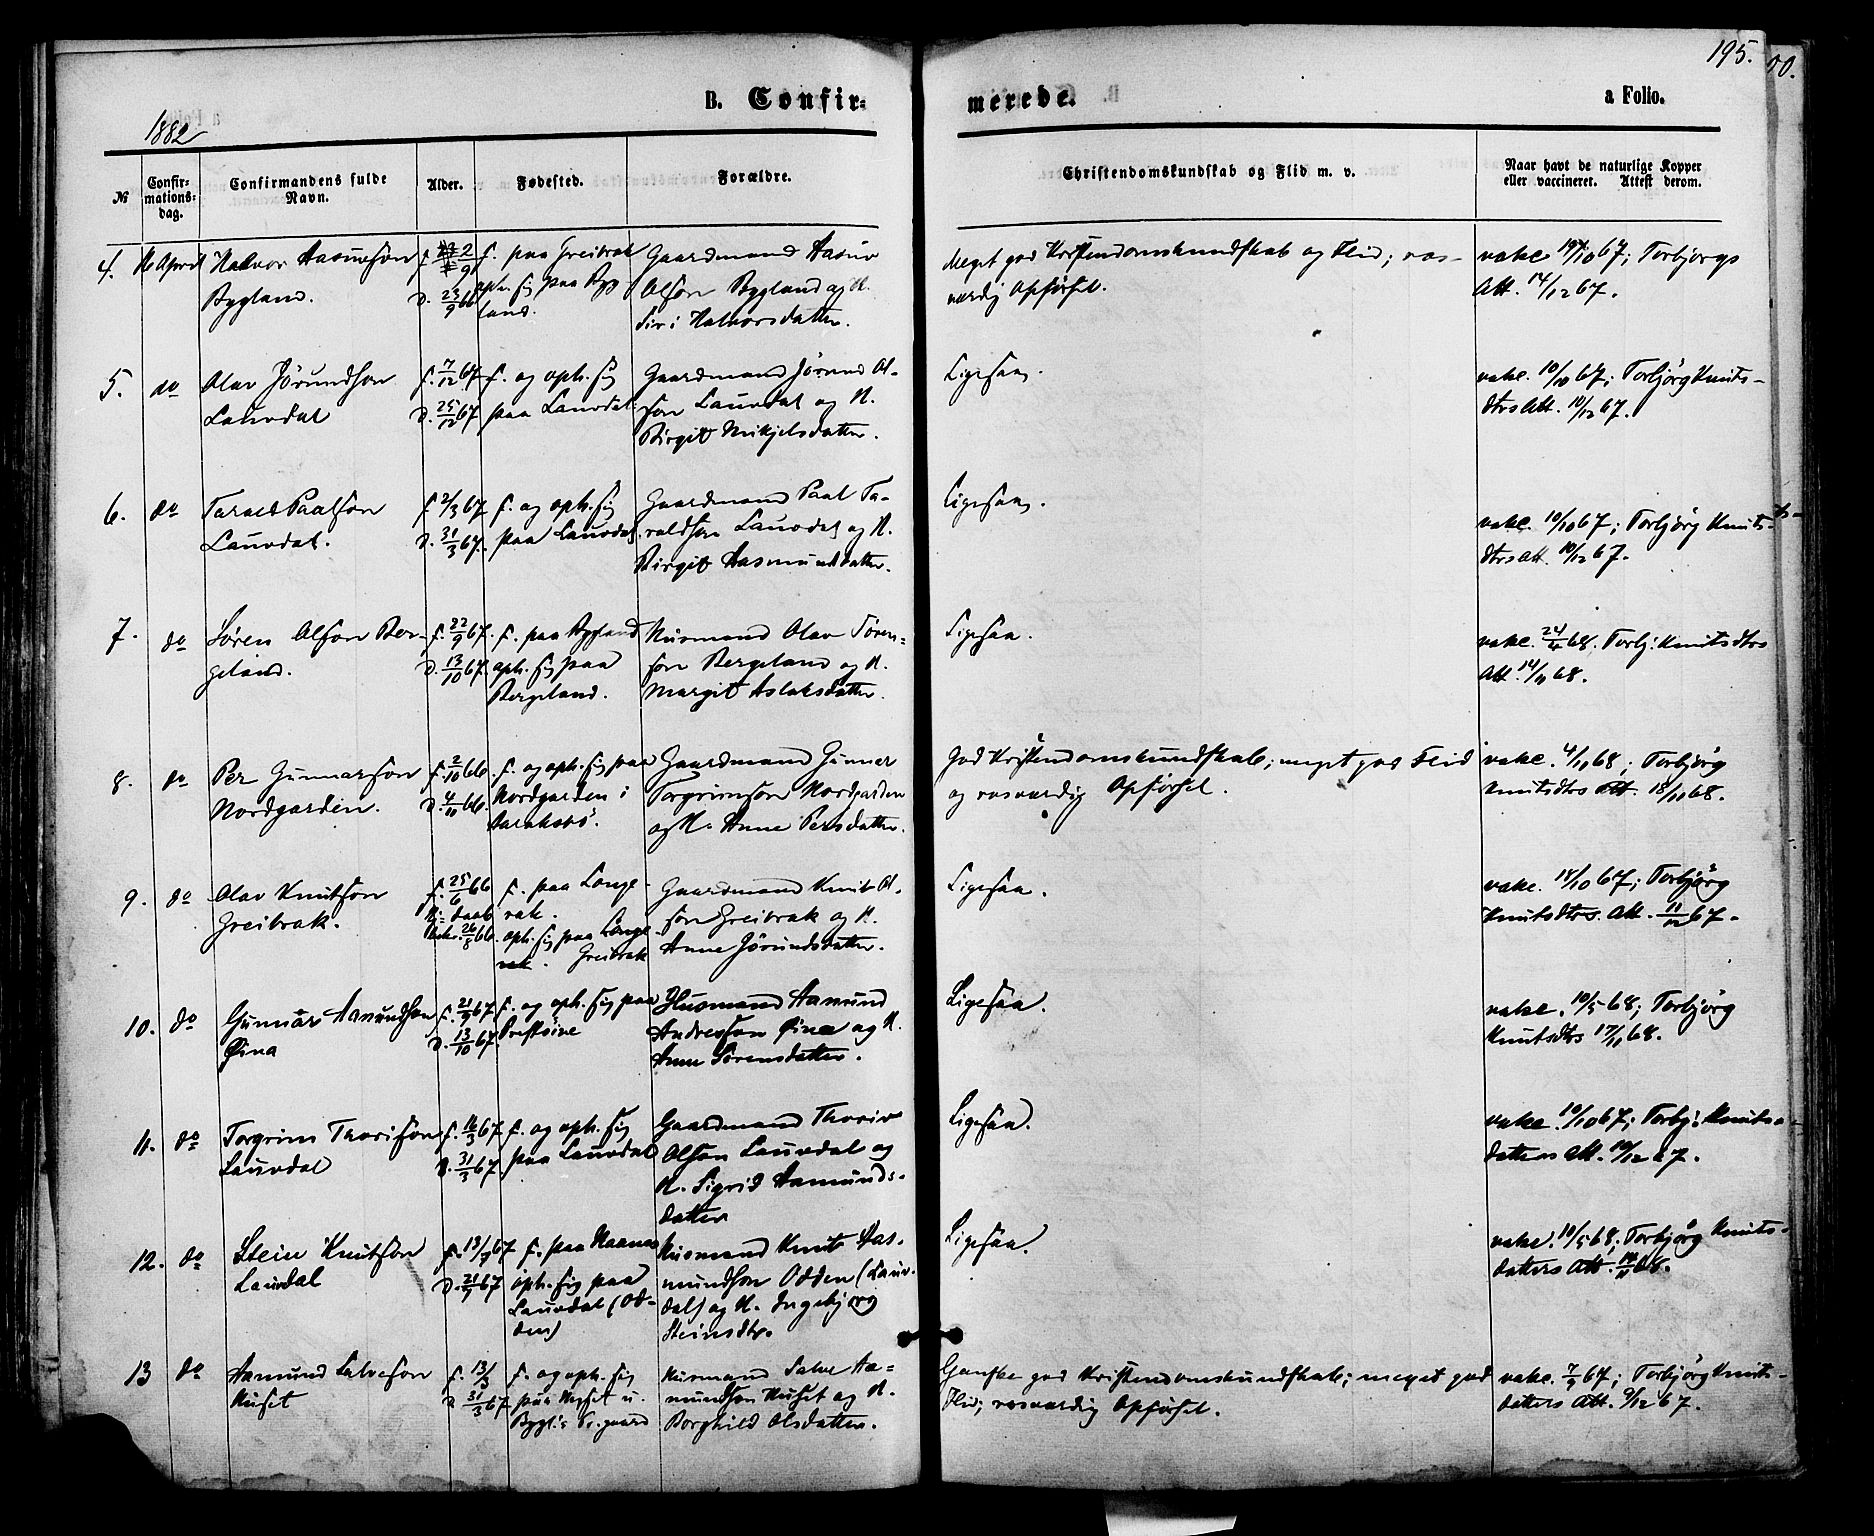 195.
B. Confir-
merede.
a Folio.
1882
№
Confir-
mations-
dag.
Confirmandens fulde
Navn.
Alder.
Fødested.
Forældre.
Christendomskundskab og Flid m. v.
Naar havt de naturlige Kopper
eller vaccineret. Attest derom.
4.
16 April
Halvor Aasmundson
Bygland.
d. 23/9 66
f. paa Greibrok
oph. sig paa Byg-
land.
Gaardmand Aasmund
Olson Bygland og H.
Siri Halvorsdatter.
Meget god Kristendomskundskab og Flid; ros-
værdig Opførsel.
vake 19/10 67; Torbjørgs
Att. 14/12 67.
5.
do
Olav Jørundson
Lauvdal
f. 7/12 67
d. 25/12 67
f. og oph. sig
paa Lauvdal.
Gaardmand Jørund Ol-
son Lauvdal og H.
Birgit Mikjelsdatter.
Ligesaa.
vake. 10/10 67; Torbjørg Knuts-
dtrs Att. 10/12 67.
6.
do
Tarald Paalson
Lauvdal.
f. 2/3 67.
d. 31/3 67.
f. og oph. sig
paa Lauvdal.
Gaardmand Paal Ta-
raldson Lauvdal og H.
Birgit Aasmundsdatter.
Ligesaa.
vake. 10/10 67; Torbjørg Knuts-
dtrs Att. 10/12 67.
7.
do
Søren Olson Ber-
geland.
f. 22/9 67.
d. 13/10 67.
f. paa Bygland
oph. sig paa
Bergeland.
Husmand Olav Søren-
son Bergeland og H.
Margit Aslaksdatter.
Ligesaa.
vake. 24/4 68. Torbj. Knutsdtrs
Att. 14/11 68.
8.
do
Per Gunnarson
Nordgarden.
f. 2/10 66.
d. 4/11 66.
f. og oph. sig paa
Nordgarden i
Gaardmand Gunnar
Torgrimson Nordgarden
og H. Anne Persdatter.
God Kristendomskundskab; meget god Flid
og rosværdig Opførsel.
vake. 4/11 68; Torbjørg
Knutsdtrs Att. 18/11 68.
9.
do
Olav Knutson
Greibrok.
f. 25/6 66
Hj: daab
bekr. 26/8 66.
f. paa Lange-
rak.
oph. sig paa Lange-
rak. Greibrok
Gaardmand Knut Ol-
son Greibrok og H.
Anne Jørundsdatter.
Ligesaa.
vake. 18/10 67; Torbjørg
Knutsdtrs. Att. 11/12 67.
10.
do
Gunnar Aamundson
Øina
f. 21/9 67.
d. 13/10 67.
f. og oph. sig paa
Prestøine
Husmand Aamund
Andresson Øina og H.
Anne Sørensdatter.
Ligesaa.
vake. 10/5 68; Torbjørg
Knutsdtrs 17/11 68.
11.
do
Torgrim Thorison
Lauvdal
f. 16/3 67.
d. 31/3 67
f. og oph. sig
paa Lauvdal
Gaardmand Thoriv
Olson Lauvdal og
H. Sigrid Aamunds-
datter
Ligesaa.
vake. 10/10 67; Torbj: Knuts-
datters Att. 10/12 67.
12.
do
Stein Knutson
Lauvdal
f. 13/7 67
d. 21/7 67
f. paa Naanes
oph. sig paa
Lauvdal (Od-
den)
Husmand Knut Aas-
mundson Odden (Lauv-
dal) og H. Ingebjørg
Steinsdtr.
Ligesaa.
vake. 10/5 68; Torbjørg Knuts-
datters Att. 68.
13
do
Aamund Salveson
Huset
f. 13/3
d. 31/3 67
f. og oph. sig
paa Huset u.
Bygl's Pr.gaard
Husmand Salve Aa-
mundson Huset og H.
Borghild Olsdatter.
Ganske god Kristendomskundskab; meget god
Flid; rosværdig Opførsel.
vake. 7/9 67; Torbjørg Knuts-
datters Att. 9/12 67.